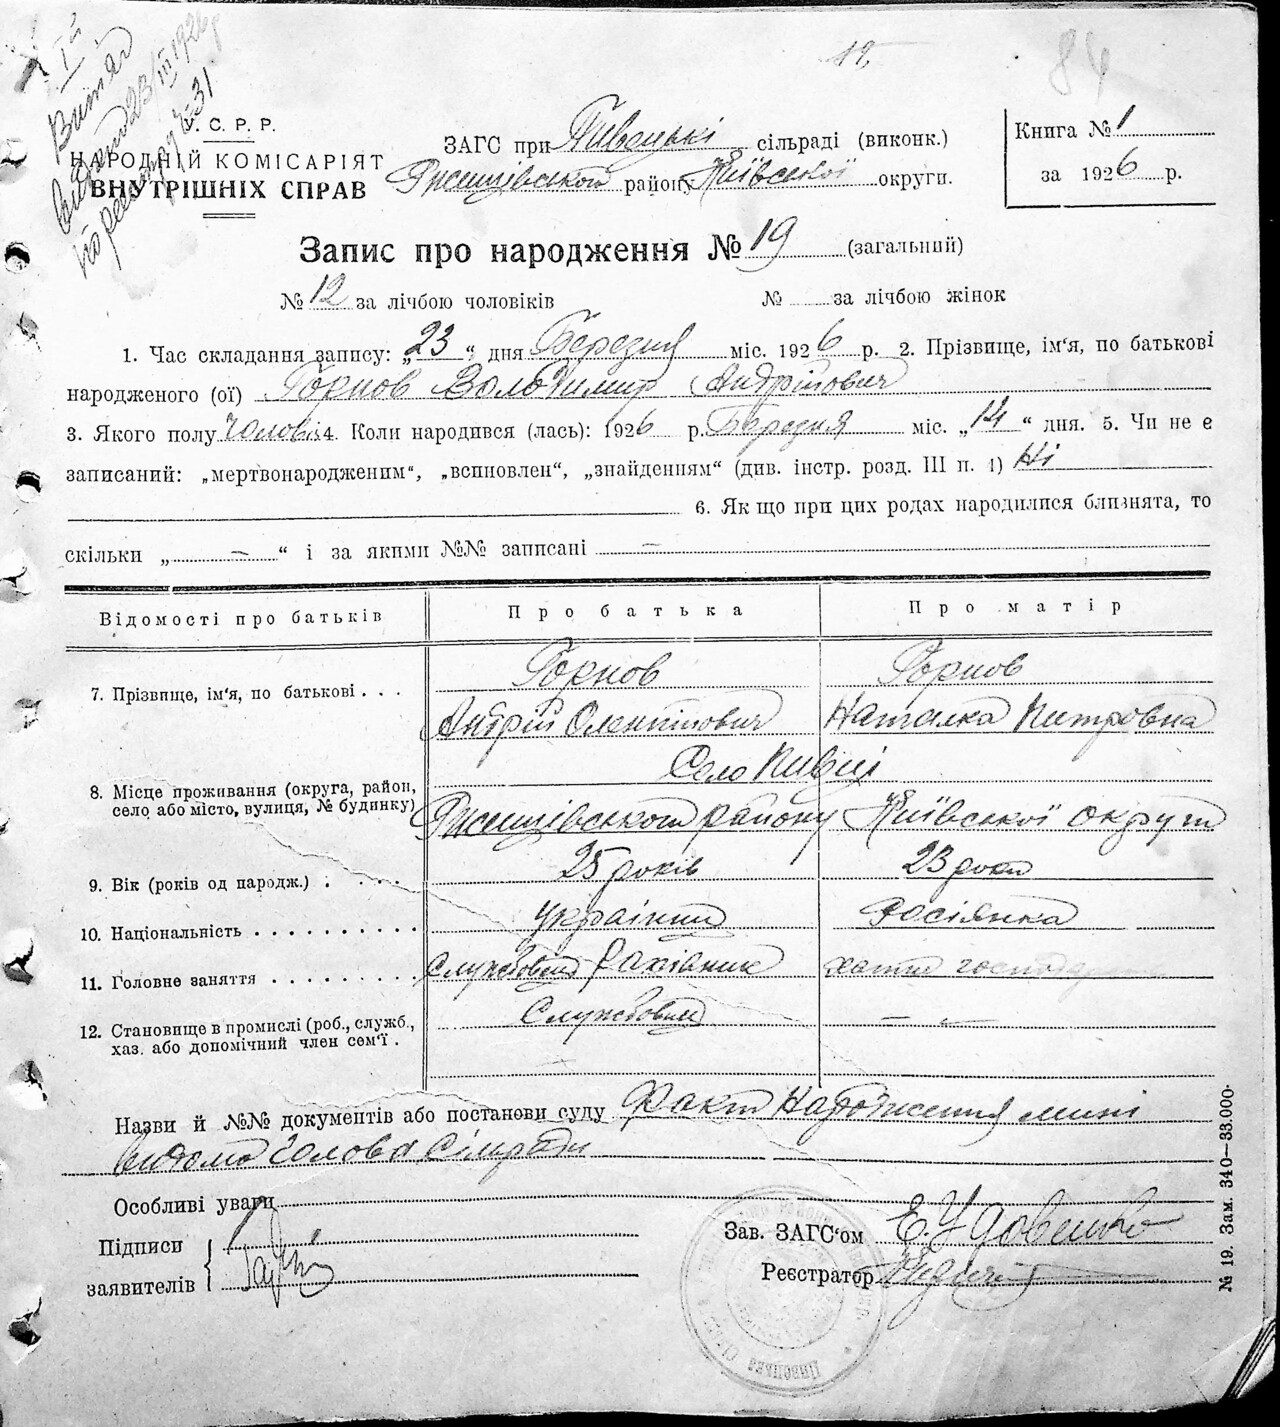 Iй
Витяг
видано 23/III 1926р
по реєстру № 31
12,
84
У. С. Р. Р.
НАРОДНІЙ КОМІСАРІЯТ
ВНУТРІШНІХ СПРАВ
ЗАГС при Пивецькі сільраді (виконк.)
Ржищівського району Київської округи.
Книга № 1
за 1926 р.
Запис про народження № 19 (загальний)
№ 12 за лічбою чоловіків № за лічбою жінок
1. Час складання запису: „23“ дня Березня міс. 1926 р. 2. Прізвище, ім'я, по батькові
народженого (ої) Горнов Володимир Андрійович
3. Якого полу чолов. 4. Коли народився (лась): 1926 р. Березня міс. „14“ дня. 5. Чи не є
записаний: „мертвонародженим“, „всиновлен“, „знайденням“ (див. інстр. розд. III п. 4) Ні
6. Як що при цих родах народилися близнята, то
скільки „ — “ і за якими №№ записані —
Відомості про батьків Про батька Про матір
7. Прізвище, ім'я, по батькові . . . Горнов Горнов
Андрій Олентійович Наталка Питровна
8. Місце проживання (округа, район, село або місто, вулиця, № будинку) Село Пивці
Ржищівського району Київської округи
9. Вік (років од народж.) . . . . 25 років 23 роки
10. Національність . . . . . . . . . . Українец Росіянка
11. Головне заняття . . . . . . . . Службовец Рахівник хатне господар
12. Становище в промислі (роб., служб., хаз. або допомічний член сем'ї . Службовец — —
Назви й №№ документів або постанови суду Факт Народження мині
видомо Голова Сілради
Особливі уваги
Підписи
заявителів
Зав. ЗАГС'ом Е. Удовенко
Реєстратор
№ 19. Зам. 340—33.000.